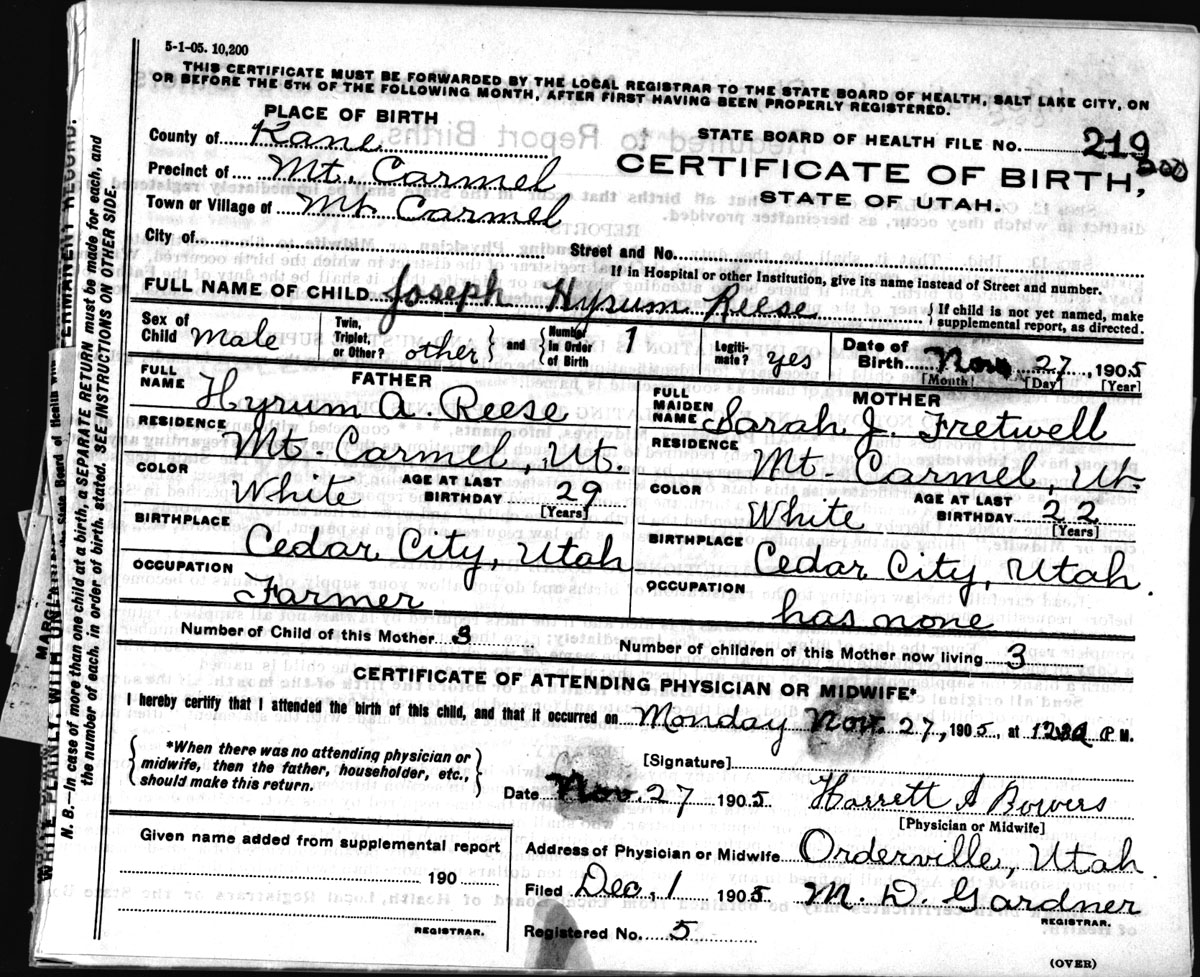 5-1-05. 10,200
THIS CERTIFICATE MUST BE FORWARDED BY THE LOCAL REGISTRAR TO THE STATE BOARD OF HEALTH, SALT LAKE CITY, ON
OR BEFORE THE 5TH OF THE FOLLOWING MONTH, AFTER FIRST HAVING BEEN PROPERLY REGISTERED.
PLACE OF BIRTH
County of Kane
Precinct of Mt. Carmel
Town or Village of Mt. Carmel
City of
STATE BOARD OF HEALTH FILE No. 219
200
CERTIFICATE OF BIRTH,
STATE OF UTAH.
Street and No.
If in Hospital or other Institution, give its name instead of Street and number.
FULL NAME OF CHILD Joseph Hyrum Reese
If child is not yet named, make
supplemental report, as directed.
Sex of
Child male
Twin,
Triplet,
or Other? other
and
Number
in Order
of Birth 1
Legiti-
mate? yes
Date of
Birth Nov 27, 1905
[Month] [Day] [Year]
FATHER
FULL
NAME Hyrum A. Reese
RESIDENCE Mt. Carmel, Ut.
COLOR White
AGE AT LAST
BIRTHDAY 29
[Years]
BIRTHPLACE Cedar City, Utah
OCCUPATION Farmer
MOTHER
FULL
MAIDEN
NAME Sarah J Fretwell
RESIDENCE Mt Carmel, Ut.
COLOR White
AGE AT LAST
BIRTHDAY 22
[Years]
BIRTHPLACE Cedar City, Utah.
OCCUPATION has none
Number of Child of this Mother 3
Number of children of this Mother now living 3
CERTIFICATE OF ATTENDING PHYSICIAN OR MIDWIFE*
I hereby certify that I attended the birth of this child, and that it occurred on Monday Nov. 27, 1905, at P. M.
*When there was no attending physician or
midwife, then the father, householder, etc.,
should make this return.
[Signature]
Date Nov. 27 1905 Harrett A Bowers
[Physician or Midwife]
Given name added from supplemental report
190
REGISTRAR.
Address of Physician or Midwife Orderville, Utah.
Filed Dec. 1 1905 M. D. Gardner
REGISTRAR.
Registered No. 5
(OVER)
N. B.—In case of more than one child at a birth, a SEPARATE RETURN must be made for each, and
the number of each, in order of birth, stated. SEE INSTRUCTIONS ON OTHER SIDE.